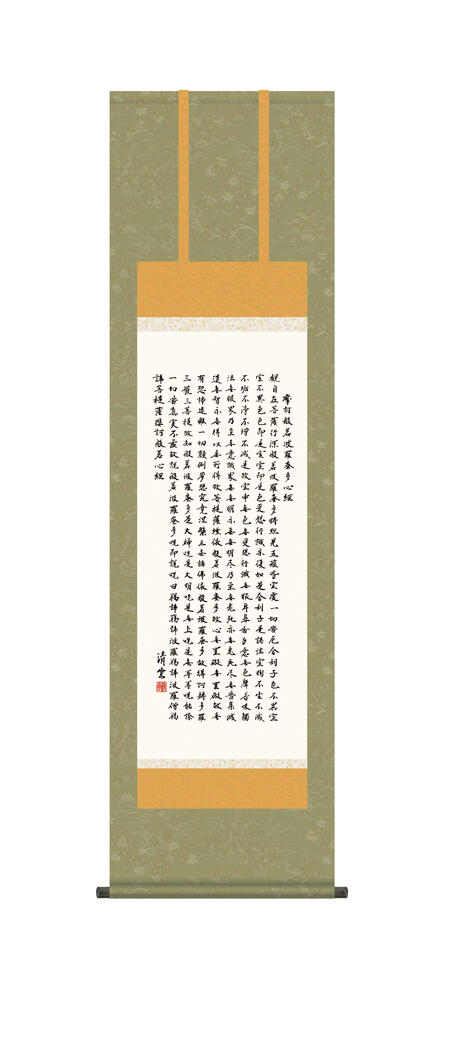 摩訶般若波羅蜜多心経
観自在菩薩行深般若波羅蜜多時照見五蘊皆空度一切苦厄舎利子色不異空
空不異色色即是空空即是色受想行識亦復如是舎利子是諸法空相不生不滅
不垢不浄不増不減是故空中無色無受想行識無眼耳鼻舌身意無色声香味触
法無眼界乃至無意識界無無明亦無無明尽乃至無老死亦無老死尽無苦集滅
道無智亦無得以無所得故菩提薩埵依般若波羅蜜多故心無罣礙無罣礙故無
有恐怖遠離一切顛倒夢想究竟涅槃三世諸佛依般若波羅蜜多故得阿耨多羅
三藐三菩提故知般若波羅蜜多是大神呪是大明呪是無上呪是無等等呪能除
一切苦真実不虚故説般若波羅蜜多呪即説呪曰羯諦羯諦波羅羯諦波羅僧羯
諦菩提薩婆訶般若心経